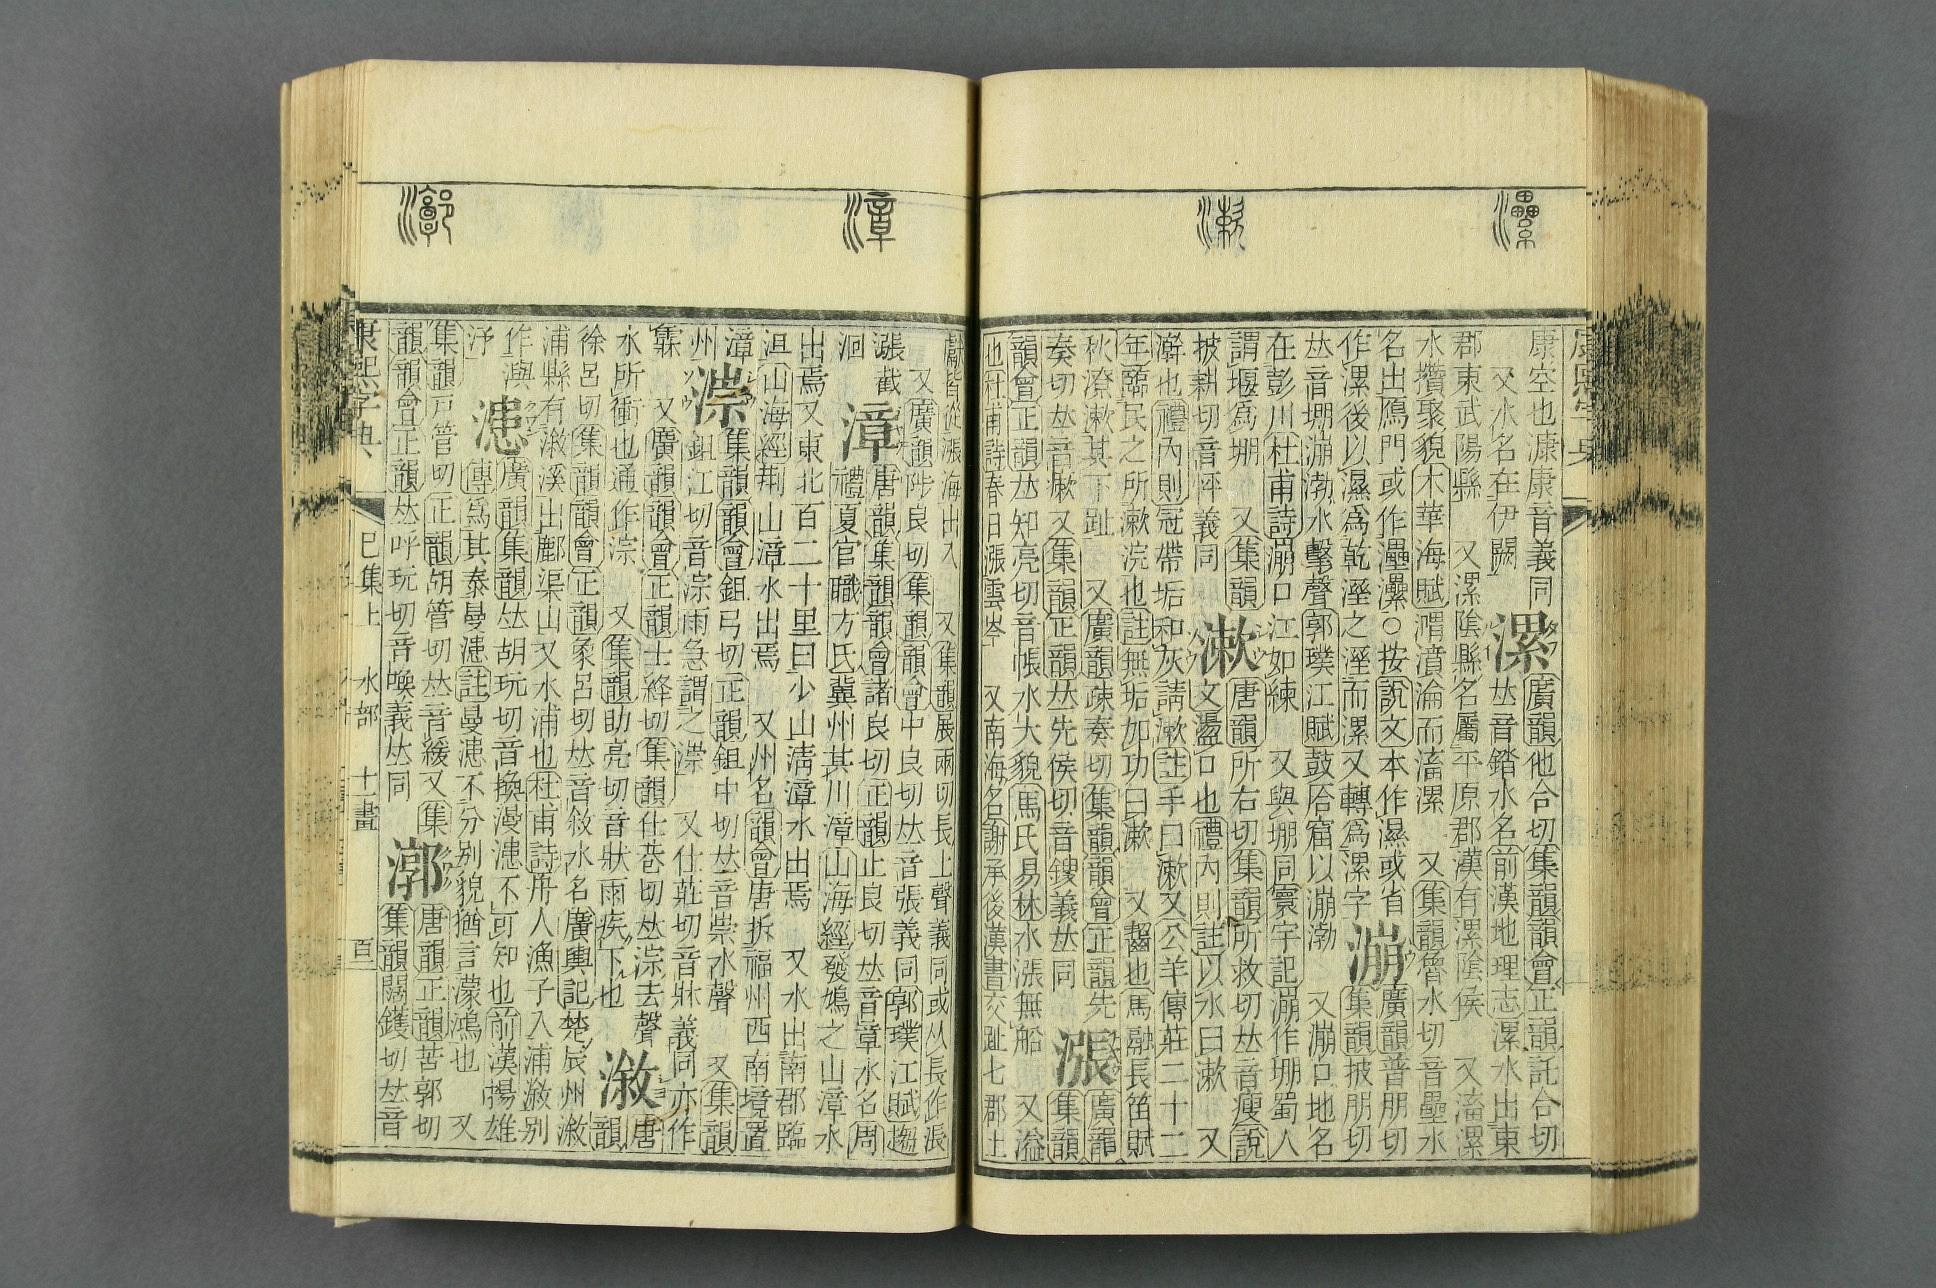 漯
漱
康空也漮康音義同
又水名在伊闕
漯
廣韻他合切集韻韻會正韻託合切
𠀤音錔水名前漢地理志漯水出東
郡東武陽縣 又漯陰縣名屬平原郡漢有漯陰侯 又滀漯
水攢聚貌木華海賦㵒濆淪而滀漯 又集韻魯水切音壘水
名出鴈門或作灅㶟○按說文本作濕或省
作漯後以濕爲乾溼之溼而漯又轉爲漯字
漰
廣韻普朋切
集韻披朋切
𠀤音堋漰渤水擊聲郭璞江賦鼓㕎窟以漰渤 又漰口地名
在彭川杜甫詩漰口江如練 又與堋同寰宇記漰作堋蜀人
謂堰爲堋 又集韻
披耕切音怦義同
漱
唐韻所右切集韻所救切𠀤音瘦說
文盪口也禮內則註以水曰漱 又
澣也禮內則冠帶垢和灰請漱註手曰漱又公羊傳莊二十二
年臨民之所漱浣也註無垢加功曰漱 又齧也馬融長笛賦
秋潦漱其下趾 又廣韻疎奏切集韻韻會正韻先
奏切𠀤音嗽 又集韻正韻𠀤先侯切音鎪義𠀤同
漲
廣韻
集韻
韻會正韻𠀤知亮切音帳水大貌馬氏易林水漲無船 又溢
也杜甫詩春日漲雲岑 又南海名謝承後漢書交趾七郡土
漳
漷
獻皆從漲海出入 又集韻展兩切長上聲義同或从長作涱
又廣韻陟良切集韻韻會中良切𠀤音張義同郭璞江賦趨
漲截
洄
漳
唐韻集韻韻會諸良切正韻止良切𠀤音章水名周
禮夏官職方氏冀州其川漳山海經發鳩之山漳水
出焉又東北百二十里曰少山淸漳水出焉 又水出南郡臨
沮山海經荆山漳水出焉 又州名韻會唐拆福州西南境置
漳
州
漴
集韻韻會鉏弓切正韻鉏中切𠀤音崇水聲 又集韻
鉏江切音淙雨急謂之漴 又仕莊切音牀義同亦作
又廣韻韻會正韻士絳切集韻仕巷切𠀤淙去聲
水所衝也通作淙 又集韻助亮切音狀雨疾下也
漵
唐
韻
徐呂切集韻韻會正韻象呂切𠀤音敘水名廣輿記楚辰州漵
浦縣有漵溪出鄜渠山又水浦也杜甫詩舟人漁子入浦漵別
作㵰
汿
漶
廣韻集韻𠀤胡玩切音換漫漶不可知也前漢揚雄
傳爲其泰曼漶註曼漶不分別貌猶言濛鴻也 又
集韻戸管切正韻胡管切𠀤音緩又集
韻韻會正韻𠀤呼玩切音喚義𠀤同
漷
唐韻正韻苦郭切
集韻闊鑊切𠀤音
康熙字典 巳集上 水部 十一畫 百一